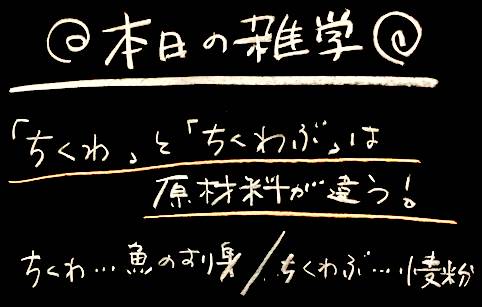 本日の雑学
「ちくわ」と「ちくわぶ」は
原材料が違う!
ちくわ…魚のすり身/ちくわぶ…小麦粉